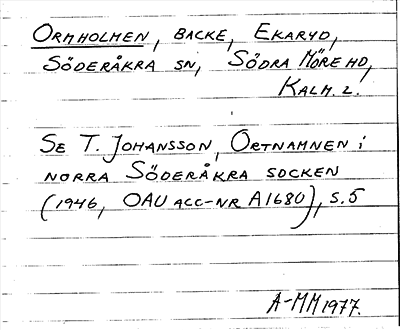 ORMHOLMEN, BACKE, EKARYD,
SÖDERÅKRA SN, SÖDRA MÖRE HD,
KALM. L.
SE T. JOHANSSON, ORTNAMNEN I
NORRA SÖDERÅKRA SOCKEN
(1946, OAU ACC-NR A1680), S.5
A-MM 1977.